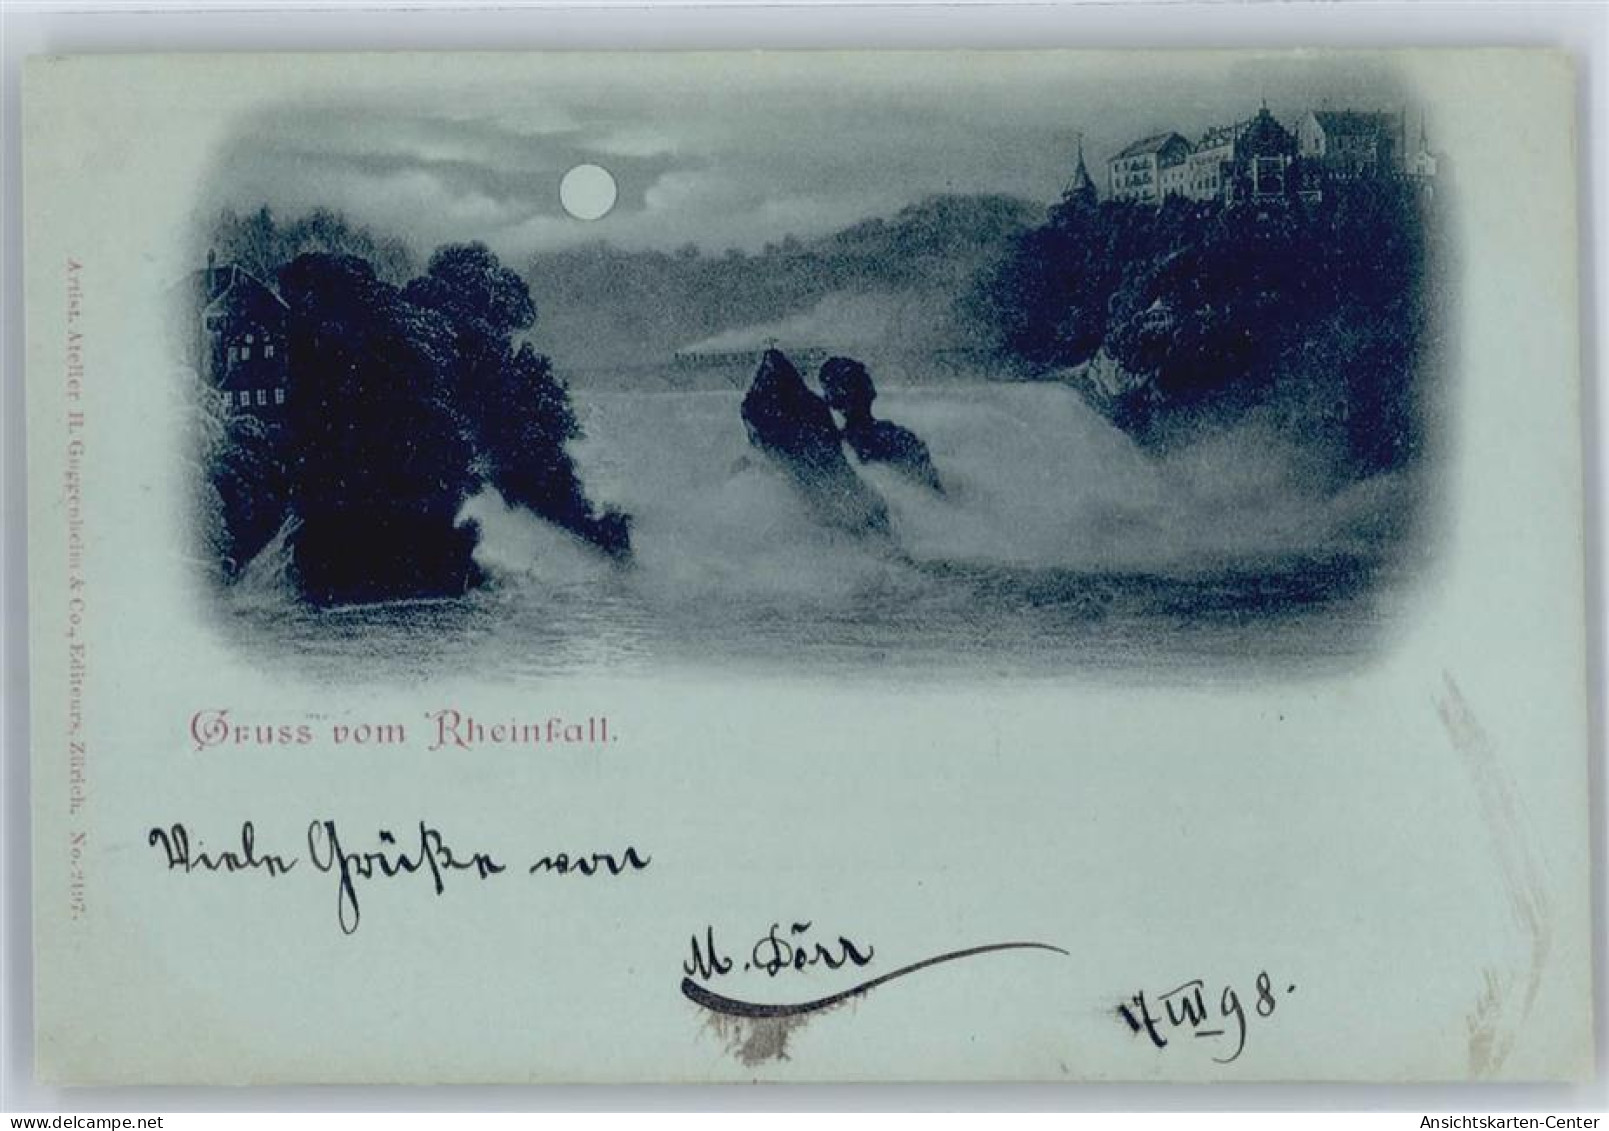 Artist. Atelier H. Guggenheim & Co., Editeurs, Zürich. No. 2197.
Gruss vom Rheinfall.
Viele Grüße von
M. Dörr
17 VIII 98.
Ansichtskarten-Center